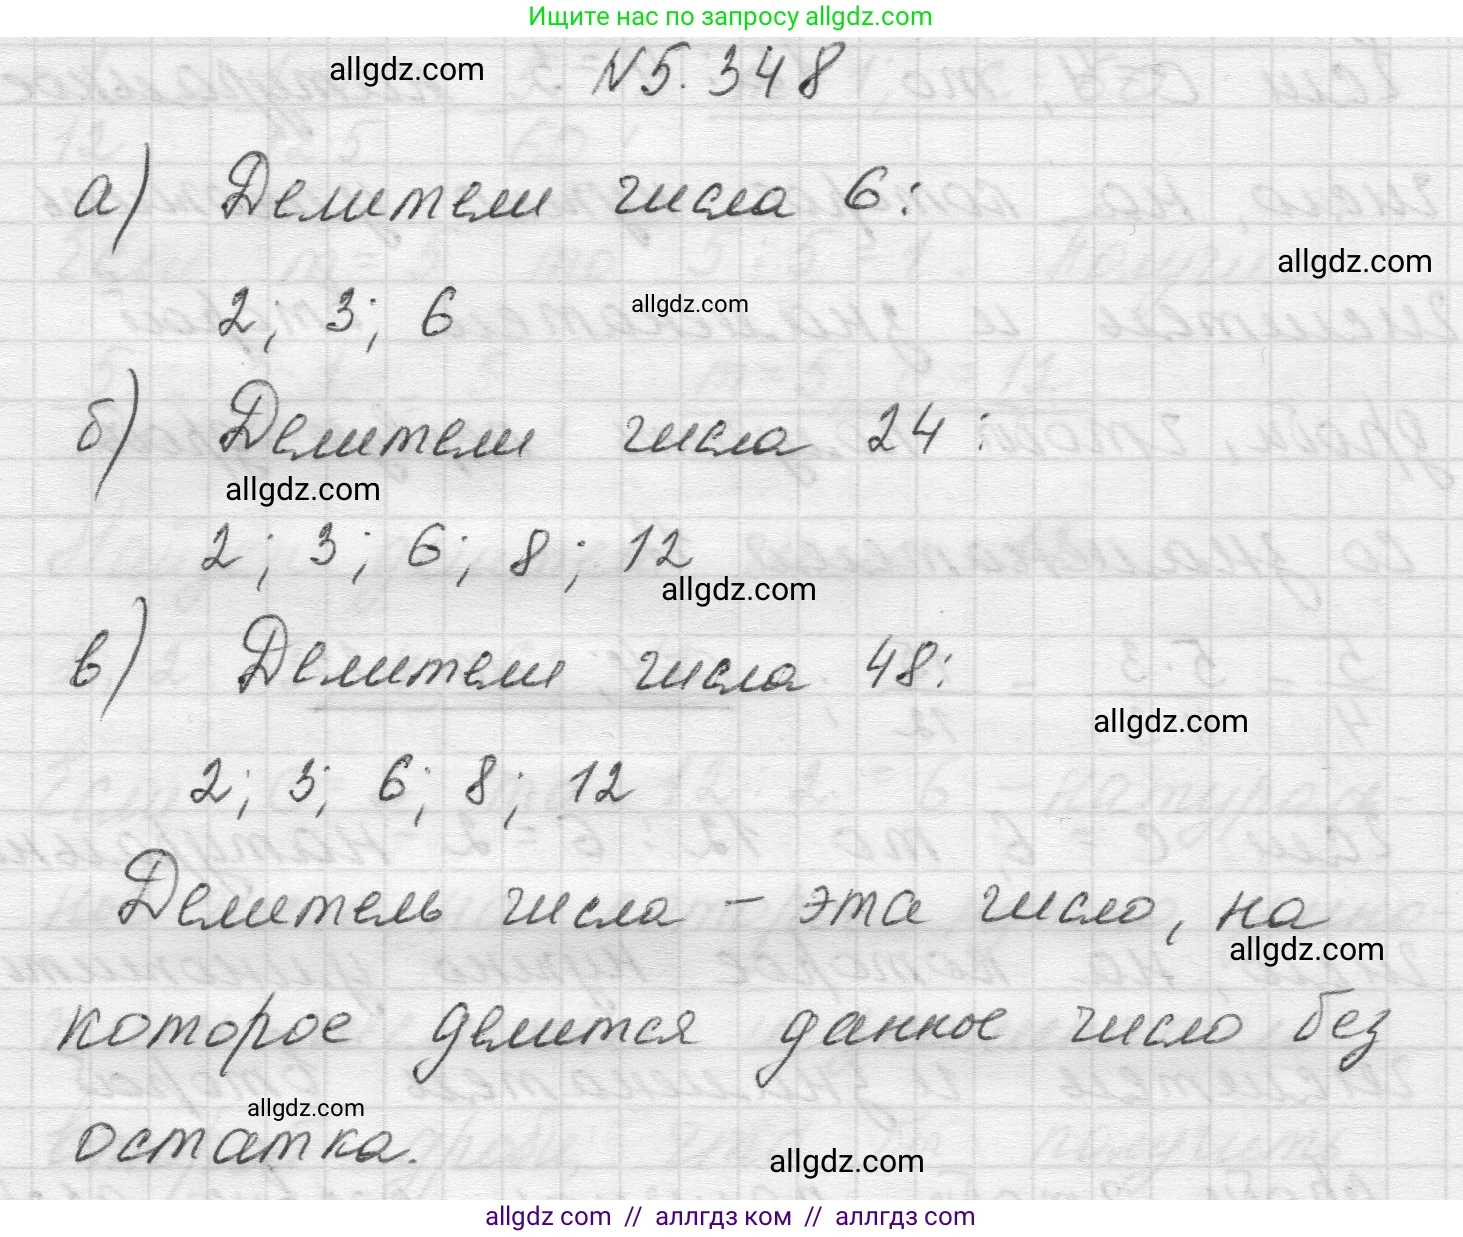 Ищите нас по запросу allgdz.com
allgdz.com
N 5. 348
а) Делители числа 6:
allgdz.com
2; 3; 6
allgdz.com
б) Делители числа 24:
allgdz.com
2; 3; 6; 8; 12
allgdz.com
в) Делители числа 48:
allgdz.com
2; 3; 6; 8; 12
Делитель числа – эта число, на
allgdz.com
которое делится данное число без
allgdz.com
остатка.
allgdz.com
allgdz com // аллгдз ком // аллгдз com